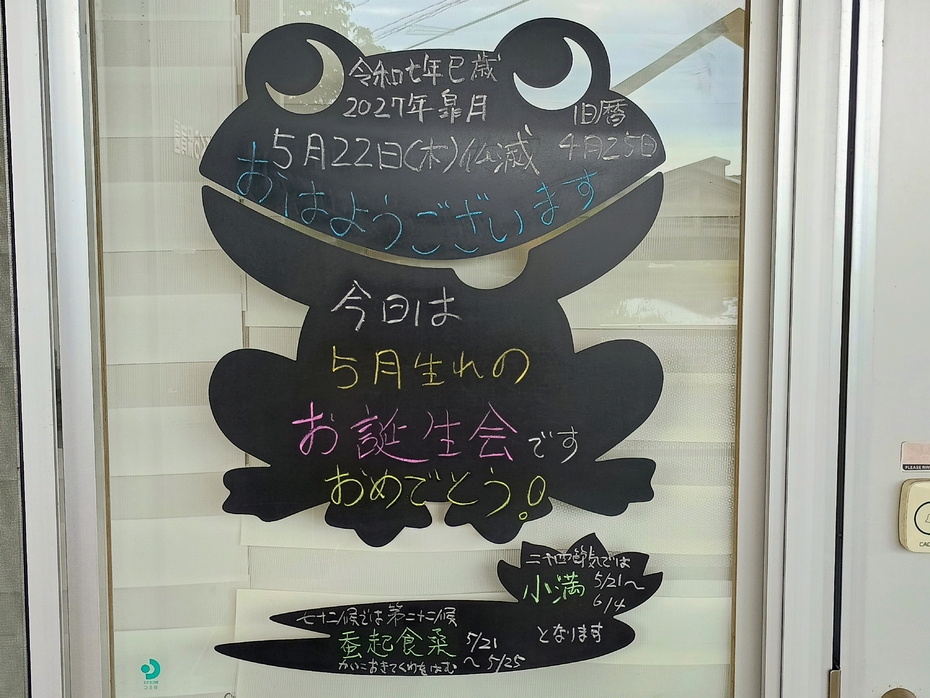 令和七年巳歳
2027年皐月
旧暦
5月22日(木)仏滅 4月25日
おはようございます
今日は
5月生れの
お誕生会です
おめでとう!
二十四節気では
小満 5/21〜
6/4
となります
七十二候では第二十二候
蚕起食桑 5/21
〜5/25
かいこおきてくわをはむ